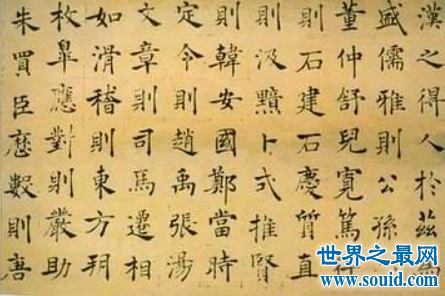 漢之得人於茲為
盛儒雅則公孫
董仲舒兒寬篤行
則石建石慶質直
則汲黯卜式推賢
則韓安國鄭當時
定令則趙禹張湯
文章則司馬遷相
如滑稽則東方朔
枚皋應對則嚴助
朱買臣歷數則唐
世界之最网
www.souid.com